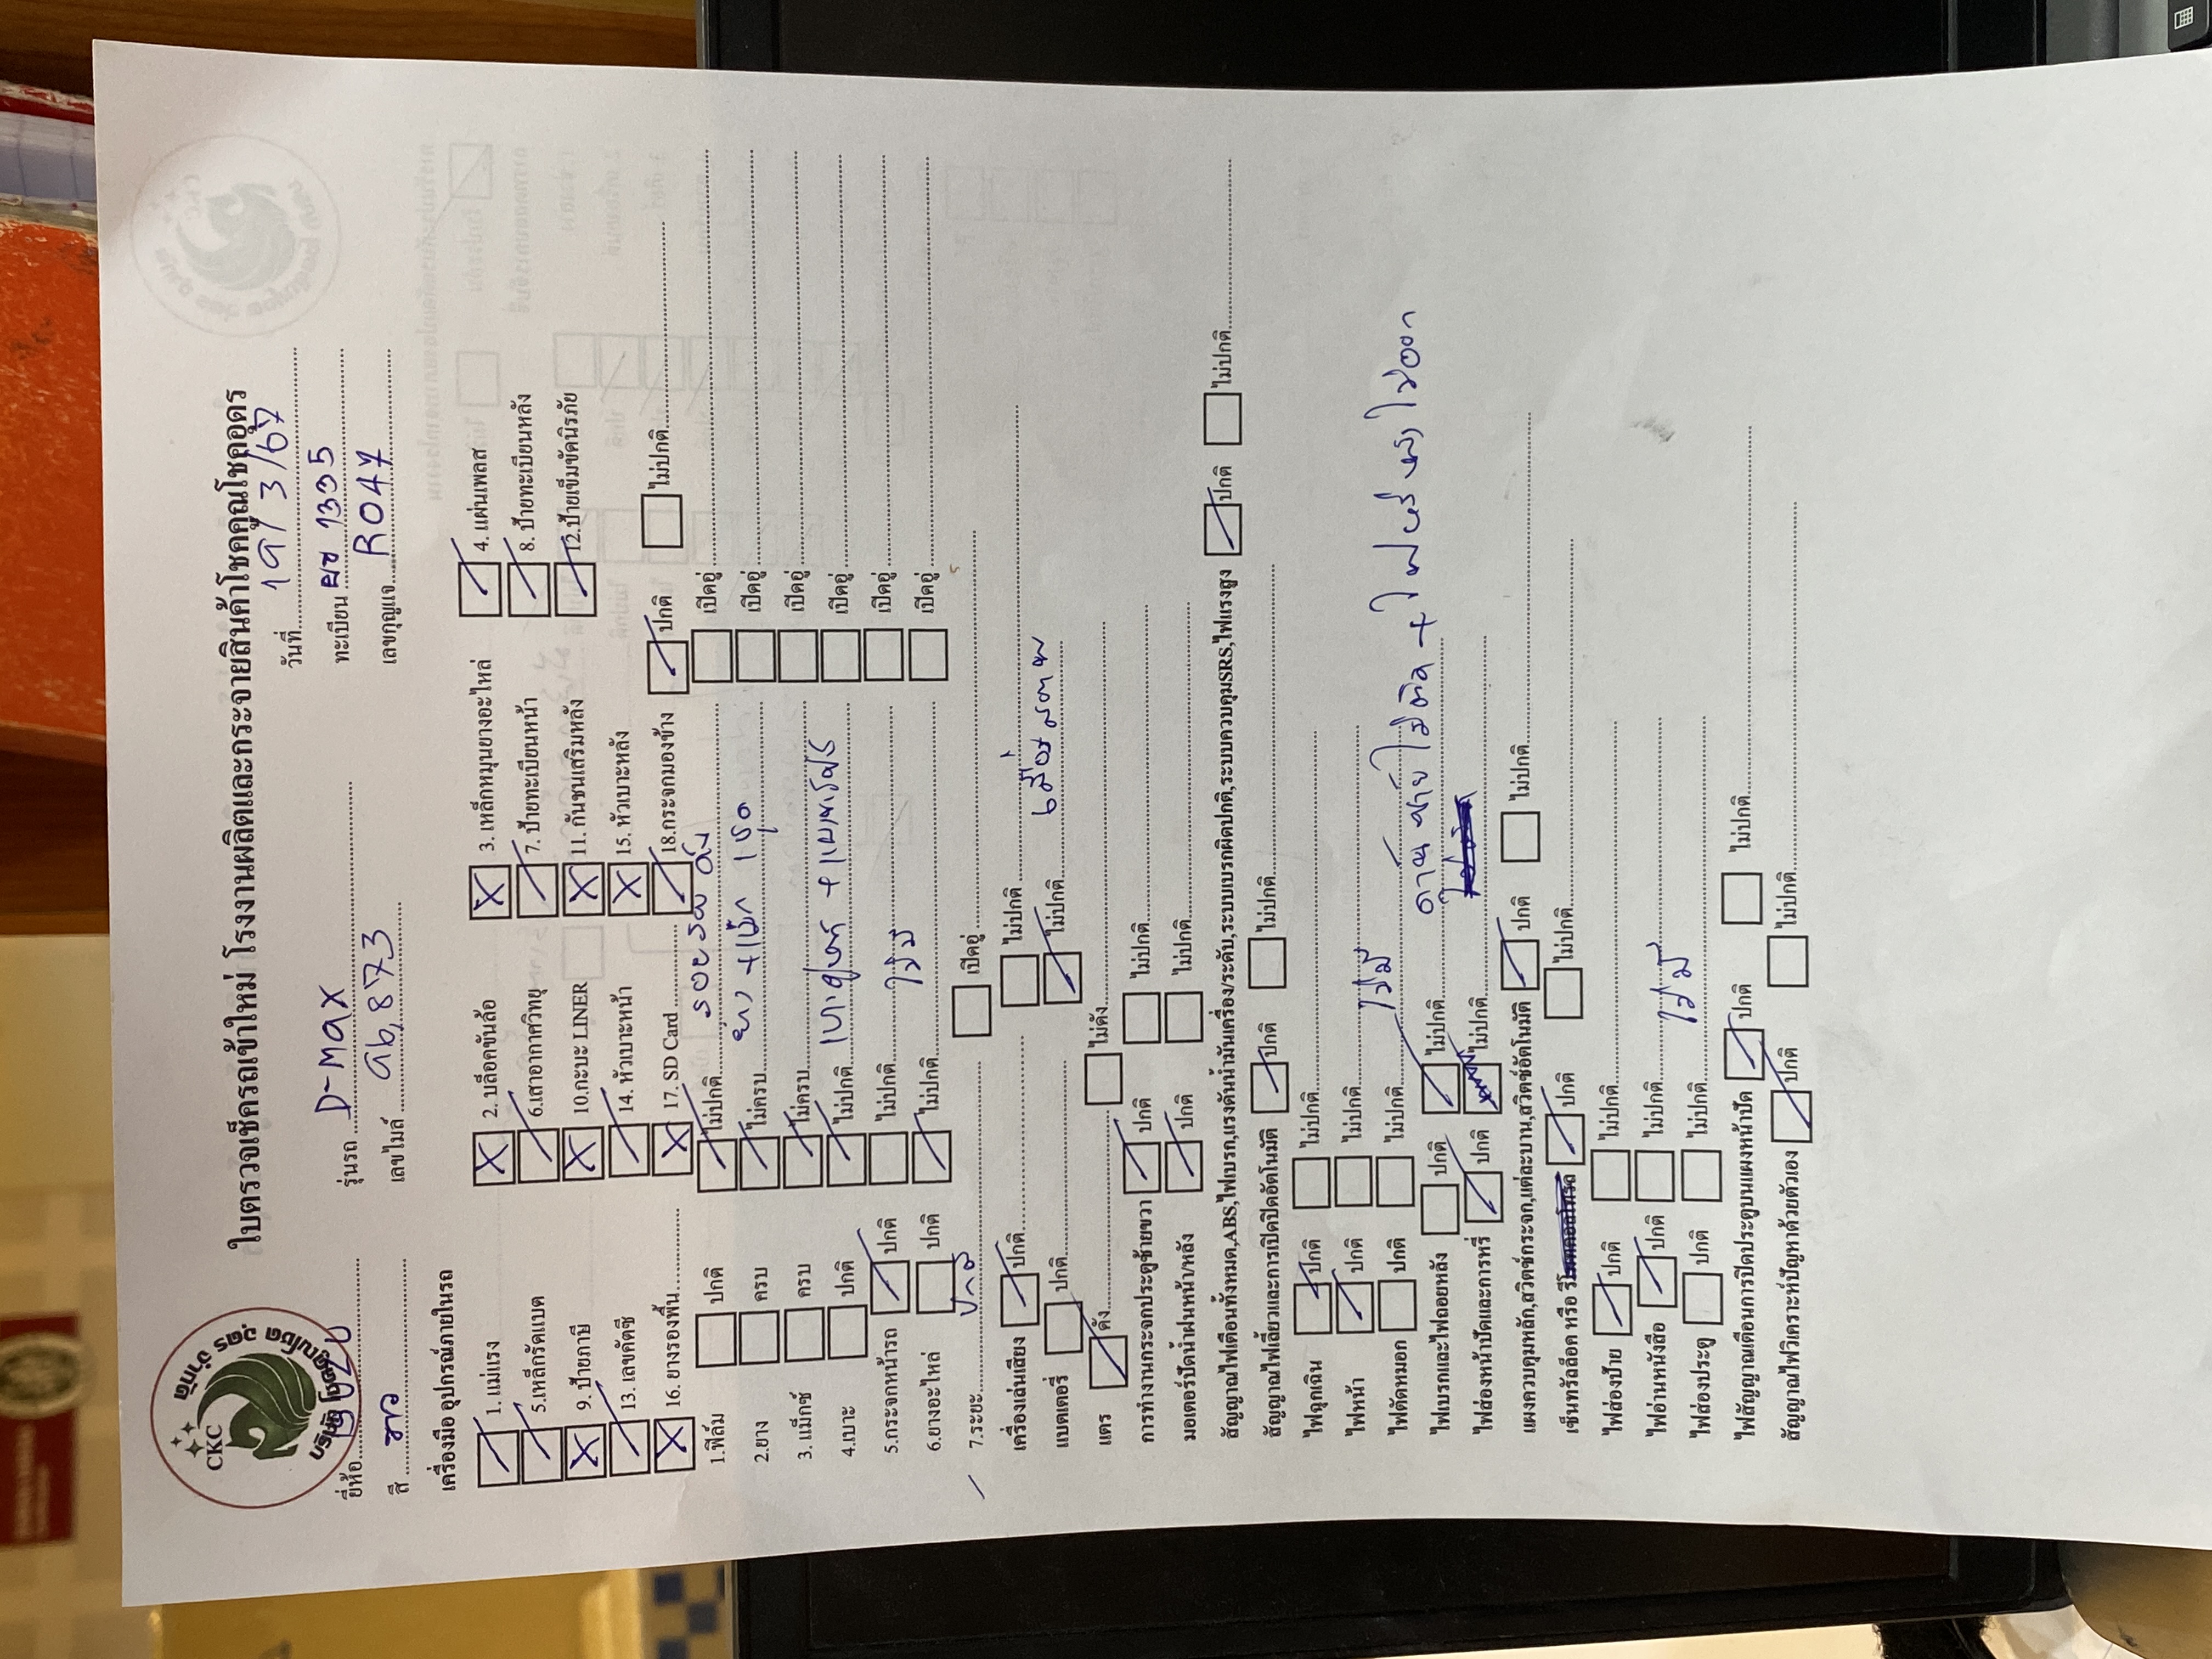 CKC
ใบตรวจเช็ครถเข้าใหม่ โรงงานผลิตและกระจายสินค้าโชคคูณโชคอุดร
วันที่ 19/3/67
ยี่ห้อ รุ่นรถ D-max ทะเบียน ผช 1335
สี ขาว เลขไมล์ 96,873 เลขกุญแจ R047
เครื่องมือ อุปกรณ์ภายในรถ
1.แม่แรง 2. บล็อคขันล้อ 3. เหล็กหมุนยางอะไหล่ 4. แผ่นเพลส
5.เหล็กรัดแบต 6.เสาอากาศวิทยุ 7. ป้ายทะเบียนหน้า 8. ป้ายทะเบียนหลัง
9. ป้ายภาษี 10.กะบะ LINER 11. กันชนเสริมหลัง 12.ป้ายเข็มขัดนิรภัย
13. เลขคัตซี 14. หัวเบาะหน้า 15. หัวเบาะหลัง
16. ยางรองพื้น 17. SD Card 18.กระจกมองข้าง ปกติ ไม่ปกติ
1.ฟิล์ม ปกติ ไม่ปกติ รอยรอบคัน เปิดอู่
2.ยาง ครบ ไม่ครบ เปิดอู่
3. แม็กซ์ ครบ ไม่ครบ เปิดอู่
4.เบาะ ปกติ ไม่ปกติ เปิดอู่
5.กระจกหน้ารถ ปกติ ไม่ปกติ ไม่มี เปิดอู่
6.ยางอะไหล่ ปกติ ไม่ปกติ เปิดอู่
7.ระยะ ปกติ เปิดอู่
เครื่องเล่นเสียง ปกติ ไม่ปกติ
แบตเตอรี่ ปกติ ไม่ปกติ เสื่อมสภาพ
แตร ดัง ไม่ดัง
การทำงานกระจกประตูซ้ายขวา ปกติ ไม่ปกติ
มอเตอร์ปัดน้ำฝนหน้า/หลัง ปกติ ไม่ปกติ
สัญญาณไฟเตือนทั้งหมด,ABS,ไฟเบรก,แรงดันน้ำมันเครื่อง/ระดับ,ระบบเบรกผิดปกติ,ระบบควบคุมSRS,ไฟแรงสูง ปกติ ไม่ปกติ
สัญญาณไฟเลี้ยวและการเปิดปิดอัตโนมัติ ปกติ ไม่ปกติ
ไฟฉุกเฉิน ปกติ ไม่ปกติ
ไฟหน้า ปกติ ไม่ปกติ
ไฟตัดหมอก ปกติ ไม่ปกติ ไม่มี
ไฟเบรกและไฟถอยหลัง ปกติ ไม่ปกติ ด้านซ้ายไม่ติด +
ไฟส่องหน้าปัดและการหรี่ ปกติ ไม่ปกติ
แผงควบคุมหลัก,สวิตช์กระจก,แต่ละบาน,สวิตช์อัตโนมัติ ปกติ ไม่ปกติ
เซ็นทรัลล็อค หรือ ปกติ ไม่ปกติ
ไฟส่องป้าย ปกติ ไม่ปกติ
ไฟอ่านหนังสือ ปกติ ไม่ปกติ
ไฟส่องประตู ปกติ ไม่ปกติ ไม่มี
ไฟสัญญาณเตือนการปิดประตูบนแผงหน้าปัด ปกติ ไม่ปกติ
สัญญาณไฟวิเคราะห์ปัญหาด้วยตัวเอง ปกติ ไม่ปกติ